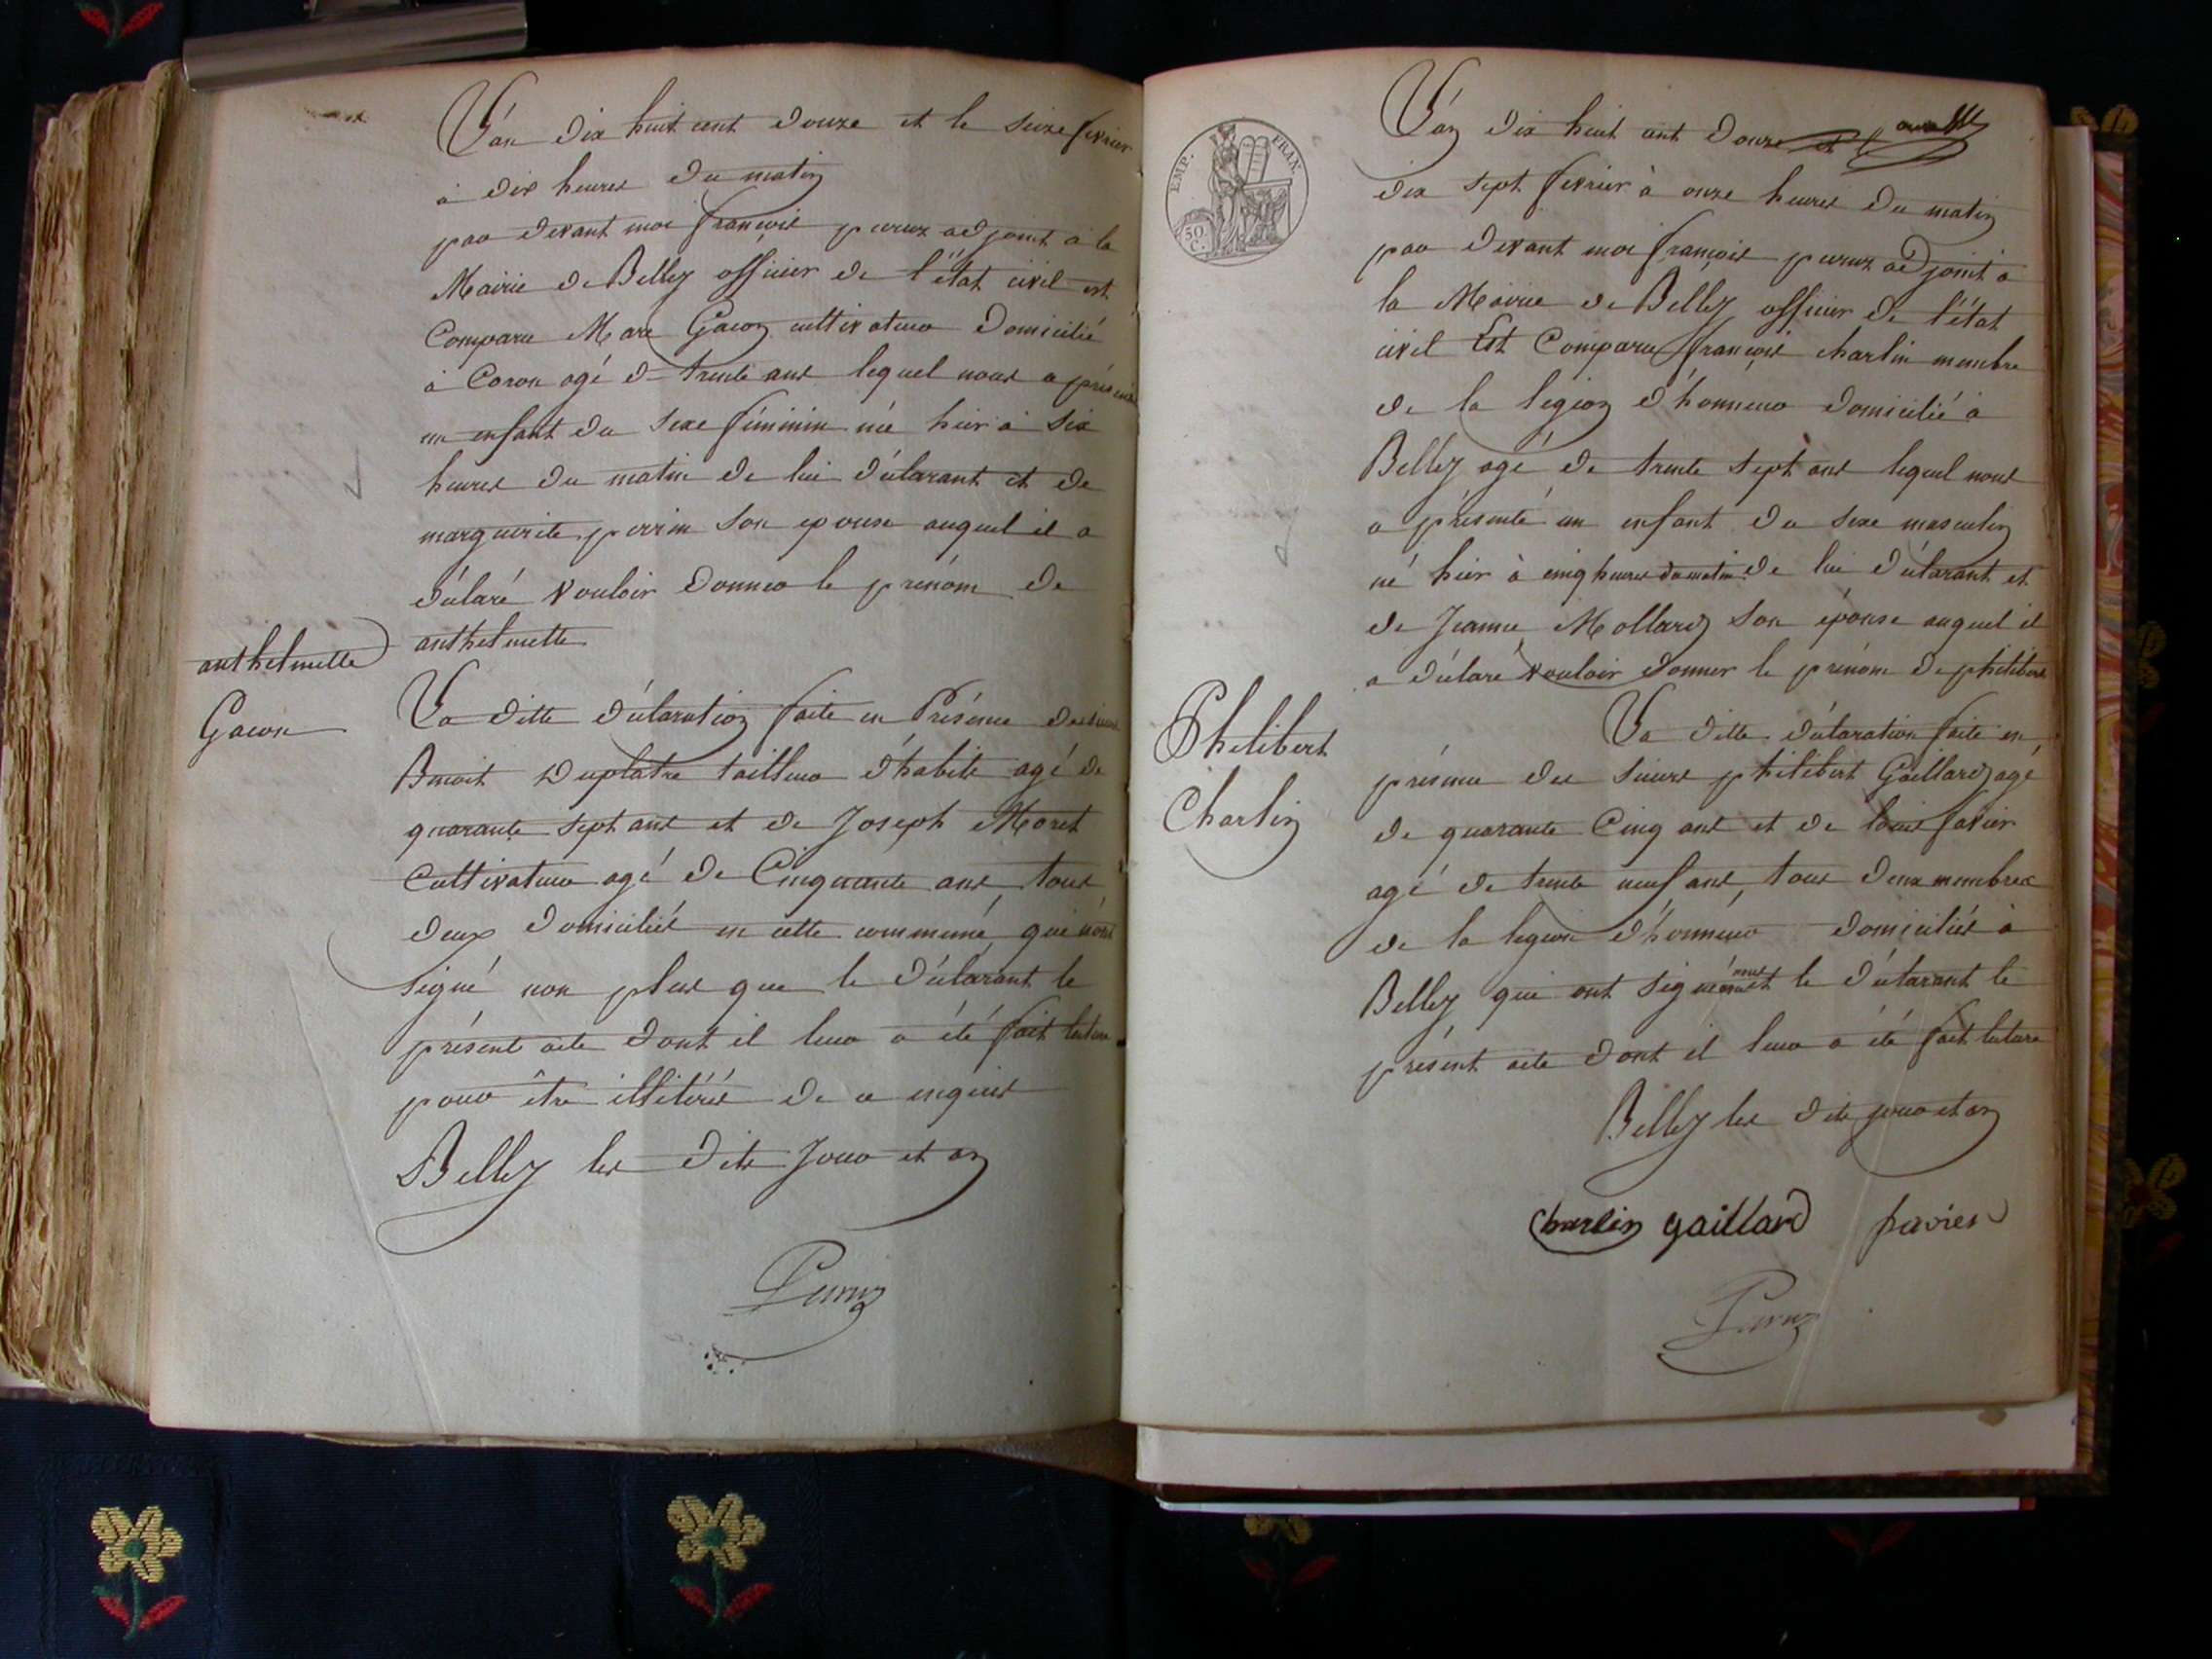 L'an dix huit cent douze et le seize fevrier
à dix heures du matin
par devant moi françois peruz adjoint à la
Mairie de Belley officier de l'état civil est
Comparu Marc Gacon cultivateur Domicilié
à Coron agé de trente ans lequel nous a présenté
un enfant du sexe féminin née hier à six
heures du matin de lui déclarant et de
marguerite perrin son epouse auquel il a
déclaré vouloir donner le prénom de
anthelmette
anthelmette
Gacon
La ditte déclaration faite en Présence des sieurs
Benoit Duplatre tailleur d'habits agé de
quarante sept ans et de Joseph Moret
Cultivateur agé de Cinquante ans tous
deux domiciliés en cette commune qui n'ont
signé non plus que le déclarant le
présent acte dont il leur a été fait lecture
pour être illitérés de ce enquis
Belley les dits Jour et an
Peruz
EMP. FRAN.
50 C.
L'an dix huit cent douze et
dix sept fevrier à onze heures du matin
par devant moi françois peruz adjoint à
la Mairie de Belley officier de l'état
civil Est Comparu françois charlin membre
de la legion d'honneur domicilié à
Belley agé de trente sept ans lequel nous
a présenté un enfant du sexe masculin
né hier à cinq heures du matin de lui déclarant et
de Jeanne Mollard son épouse auquel il
a déclaré vouloir donner le prénom de philibert
Philibert
Charlin
La ditte déclaration faite en
présence des sieurs philibert Gaillard agé
de quarante Cinq ans et de louis favier
agé de trente neuf ans, tous deux membres
de la legion d'honneur domiciliés à
Belley qui ont signé et le déclarant le
présent acte dont il leur a été fait lecture
Belley les dits jour et an
Charlin gaillard favier
Peruz